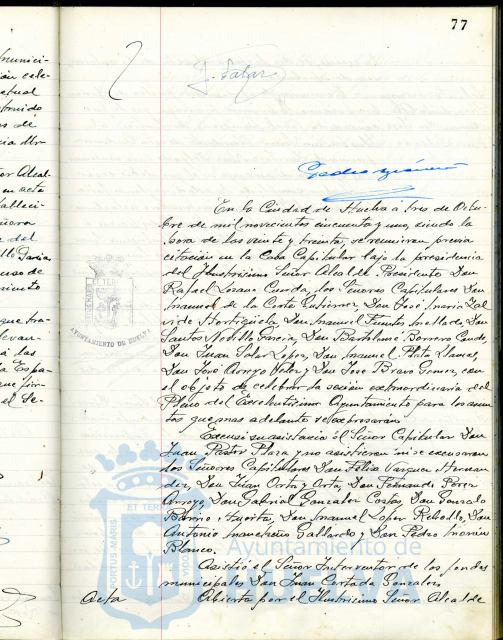 77
J. Salas
Pedro
En la Ciudad de Huelva á tres de Octu-
bre de mil novecientos cincuenta y uno, siendo la
hora de las veinte y treinta, se reunieron previa
citación en la Casa Capitular bajo la presidencia
del Ilustrisimo Señor Alcalde Presidente Don
Rafael Lozano Cuerda, los Señores Capitulares Don
Manuel de la Corte Gutierrez, Don José Maria Zal
vide Hortigüela, Don Manuel Fuentes Mellado, Don
Santos Novillo Garcia, Don Bartolomé Borrero Conde,
Don Juan Salas Lopez, Don Manuel Plata Llamas,
Don José Arroyo Velez y Don José Bravo Gomez, con
el objeto de celebrar la sesión extraordinaria del
Pleno del Excelentisimo Ayuntamiento para los asun
tos que mas adelante se expresarán.
Excusó su asistencia el Señor Capitular Don
Juan Pastor Plaza y no asistieron ni se excusaron
los Señores Capitulares Don Félix Vazquez Hernan
dez, Don Juan Ortiz y Orta, Don Fernando Perez
Arroyo, Don Gabriel Gonzalez Costas, Don Gonzalo
Barrio Huerta, Don Manuel Lopez Rebollo, Don
Antonio Gallardo y Don Pedro
Blanco.
Asistió el Señor Interventor de los fondos
municipales Don Juan Gonzalez
Acta
Abierta por el Ilustrisimo Señor Alcalde
AYUNTAMIENTO DE HUELVA
Ayuntamiento de
HUELVA
PORTUS MARIS
ET TER